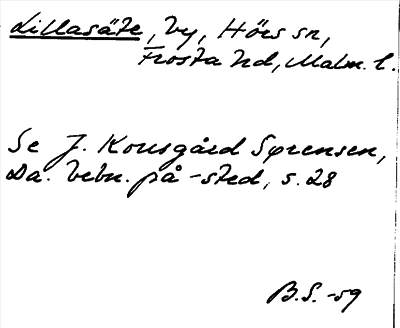 Lillasäte, by, Hörs sn,
Frosta hd, Malm. l.
Se J. Kousgård Sørensen,
Da. bebn. på -sted, s. 28
B.S. -59